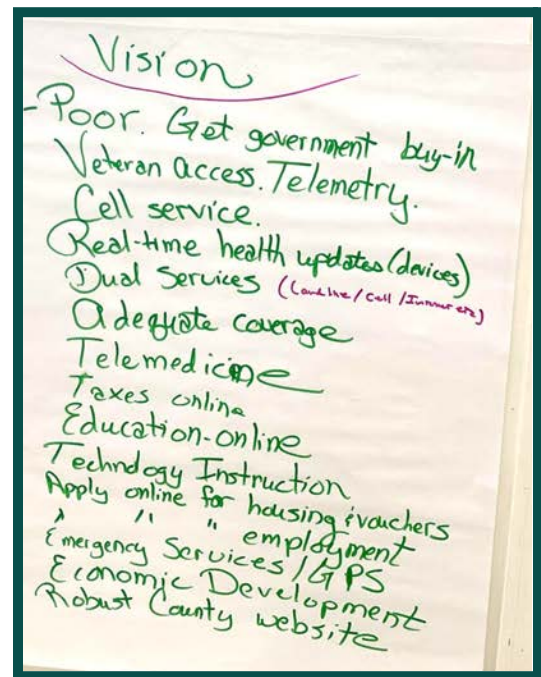 Vision
-Poor. Get government buy-in
Veteran access. Telemetry.
Cell service.
Real-time health updates (devices)
Dual Services (Landline/Cell/
Adequate coverage
Telemedicine
Taxes online
Education-online
Technology Instruction
Apply online for housing & vouchers
" " " employment
Emergency Services/GPS
Economic Development
Robust County website